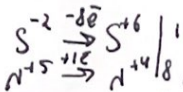 S⁻² −8ē→ S⁺⁶ | 1
N⁺⁵ +1ē→ N⁺⁴ | 8